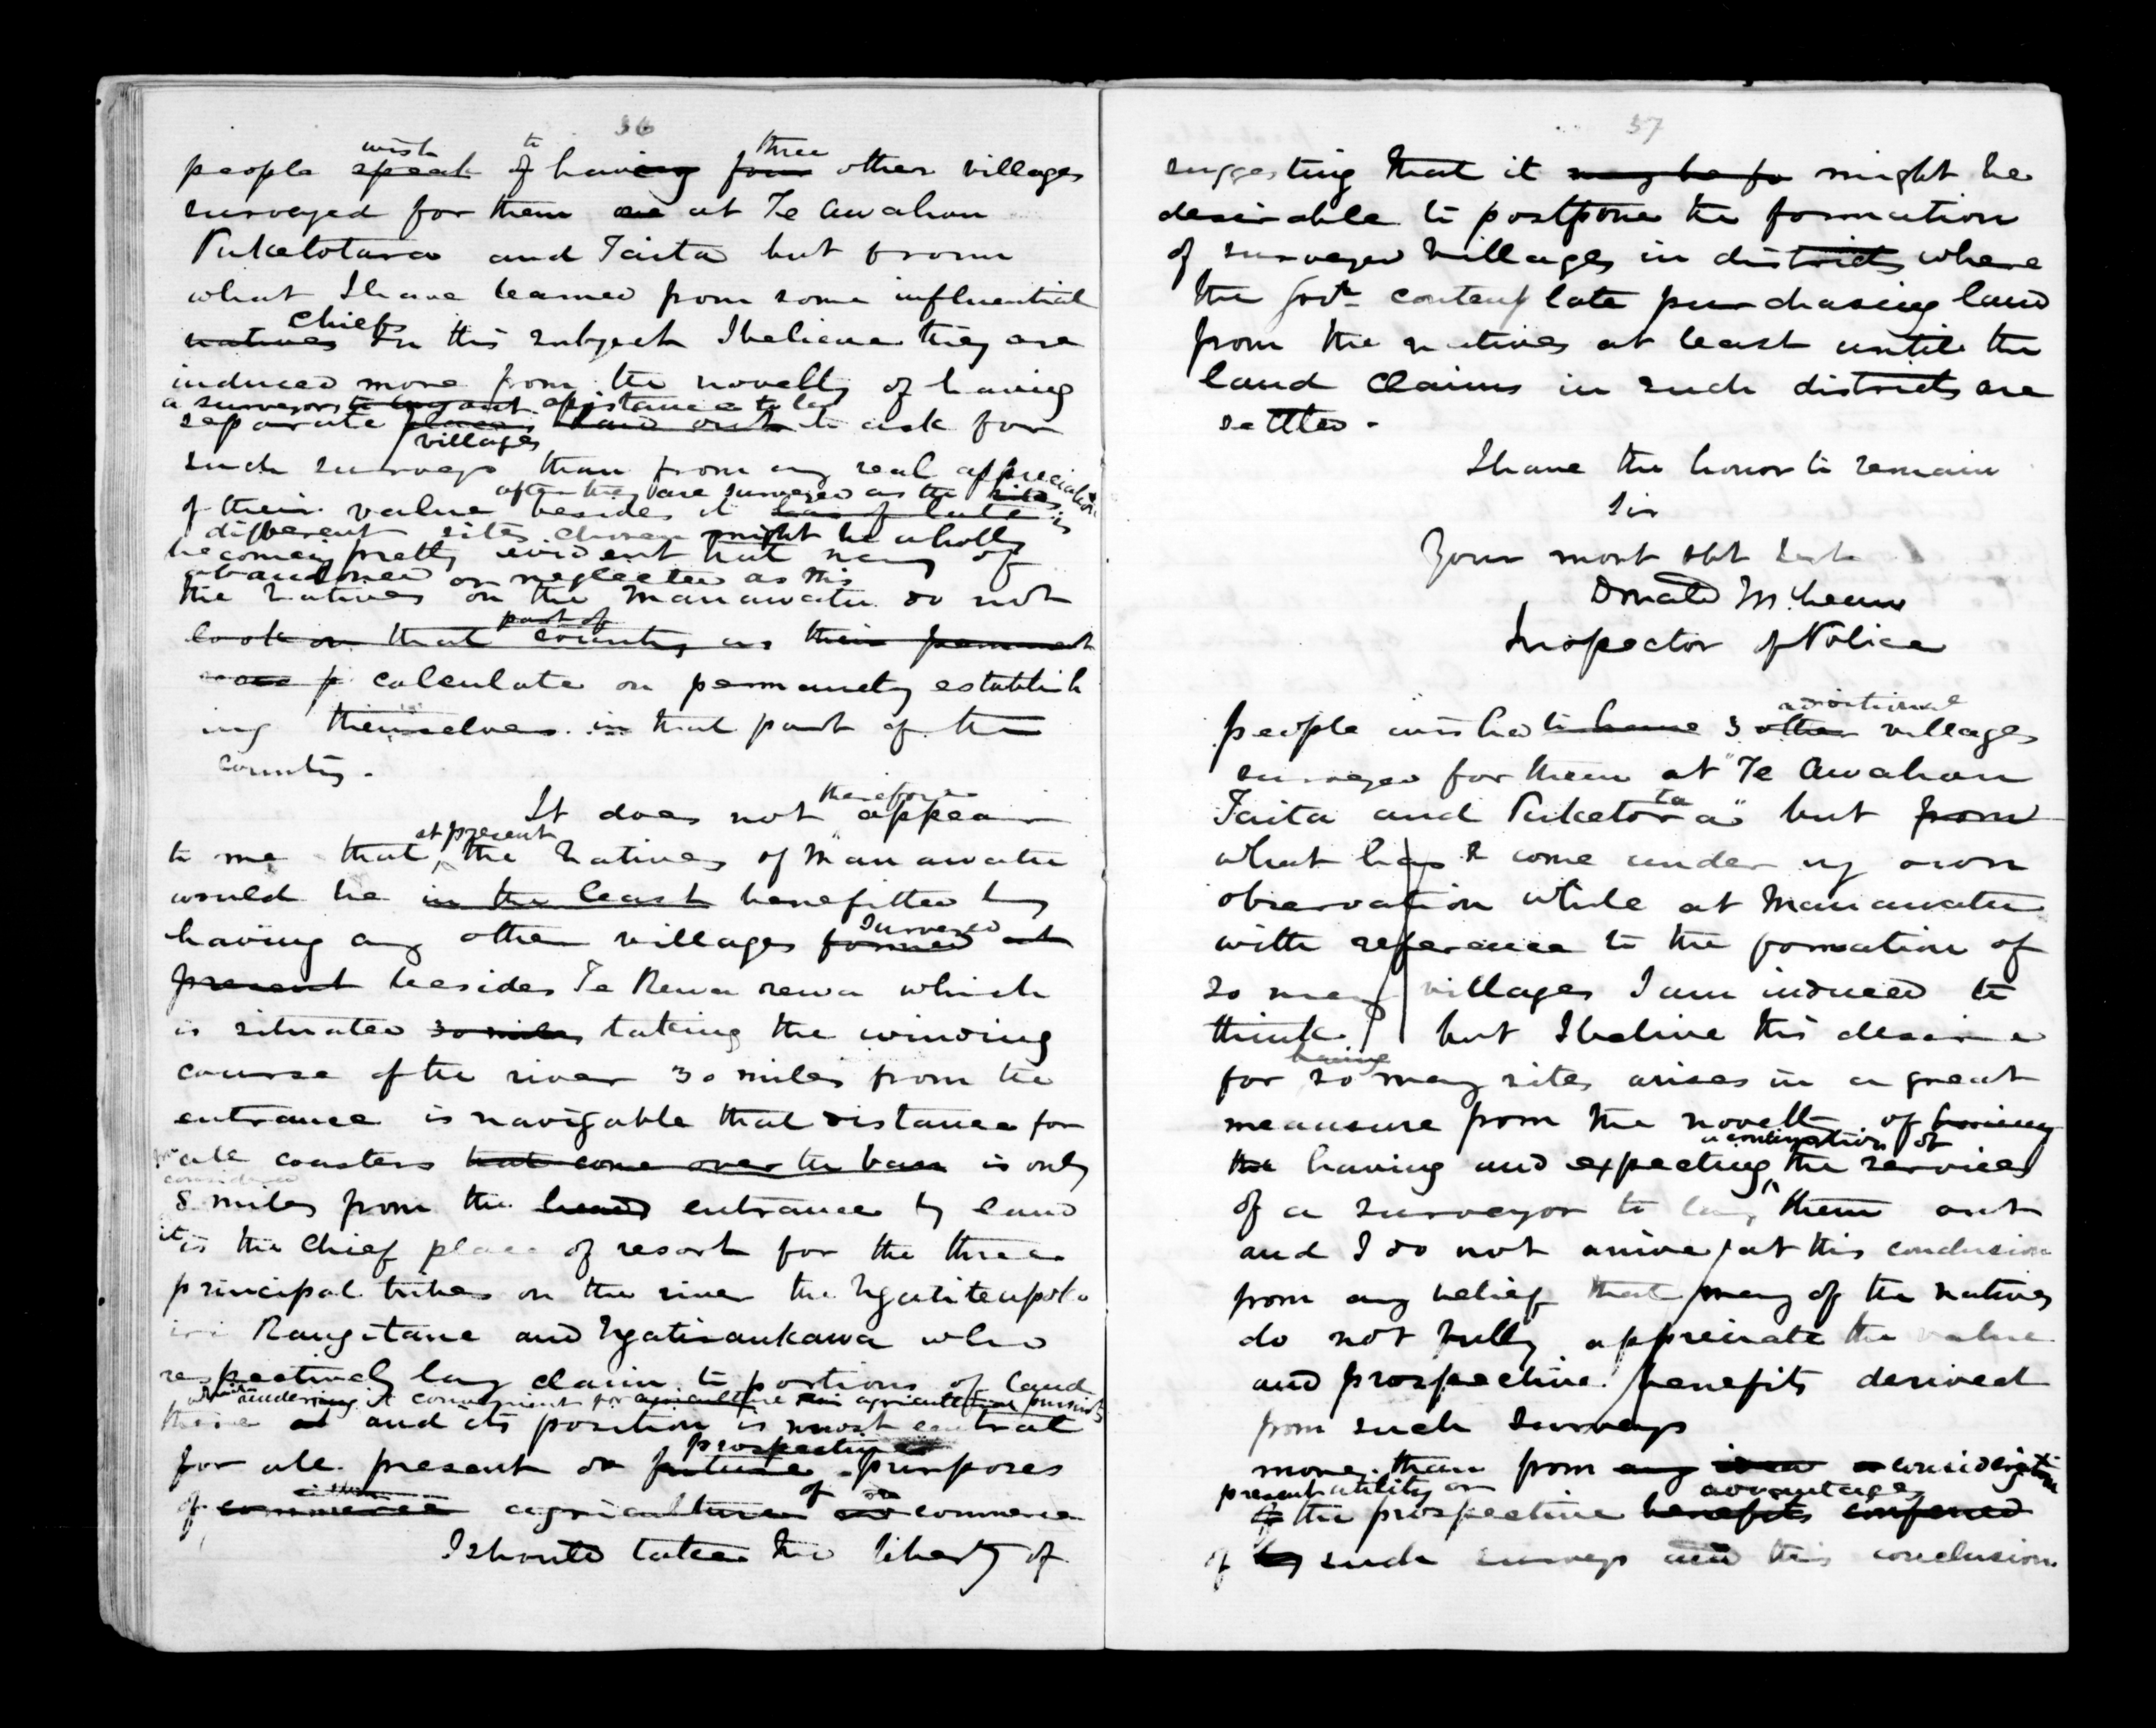 36
wish to three
people speak of having four other villages
surveyed for them are at Te Awahou
Puketotara and Taita but from
what I have learned from some influential
chiefs
natives on this subject I believe they are
induced more from the novelty of having
a surveyors to lay out assistance to lay
separate places laid out to ask for
villages
such surveys than from any real appreciation
after they are surveyed as the sites
of their value besides it has of late is
different sites chosen might be wholly
becoming pretty evident that many of
abandoned or neglected as this
the natives on the Manawatu do not
part of
look on that country as their permanent
calculate on permanetly establish
ing themselves in that part of the
country.
therefore
It does not appear
at present
to me that, the natives of Manawatu
would be in the least benefitted by
surveyed
having any other villages formed at
present besides Te Rewa rewa which
is situated 30 miles taking the winding
course of the river 30 miles from the
entrance is navigable that distance for
all coasters that come over the bar is only
considered
8 miles from the head entrance by land
it is the chief place of resort for the three
principal tribes on the river the Ngatiteupoko
iri Rangitane and Ngatiraukawa who
respectively lay claim to portions of land
rendering it convenient for agriculture agricultural pursuits
there at and its position is most central
prospective
for all present or future purposes
of or
of commerce agriculture and commerce
I should take the liberty of
37
suggesting that it may be fo might be
desirable to postpone the formation
of surveyed villages in districts where
the Govt contemplate purchasing land
from the natives at least until the
land claims in such districts are
settled.
I have the honor to remain
Sir
Your most obt Svt
Donald McLean
Inspector of Police
additional
people wished to have 3 other villages
surveyed for them at "Te Awahou
ta
Taita and Puketora" but from
what has come under my own
observation while at Manawatu
with reference to the formation of
so many villages I am induced to
think but I beleive this desire
having
for so many sites arises in a great
measure from the novelty of having
a continuation of
the having and expecting the services
of a surveyor to lay them out
and I do not arrive at this conclusion
from any belief that many of the natives
do not fully appreciate the value
and prospective benefits derived
from such surveys
more than from any idea a consideration
present utility or advantages
of the prospective benefits conferred
of by such surveys and this conclusion